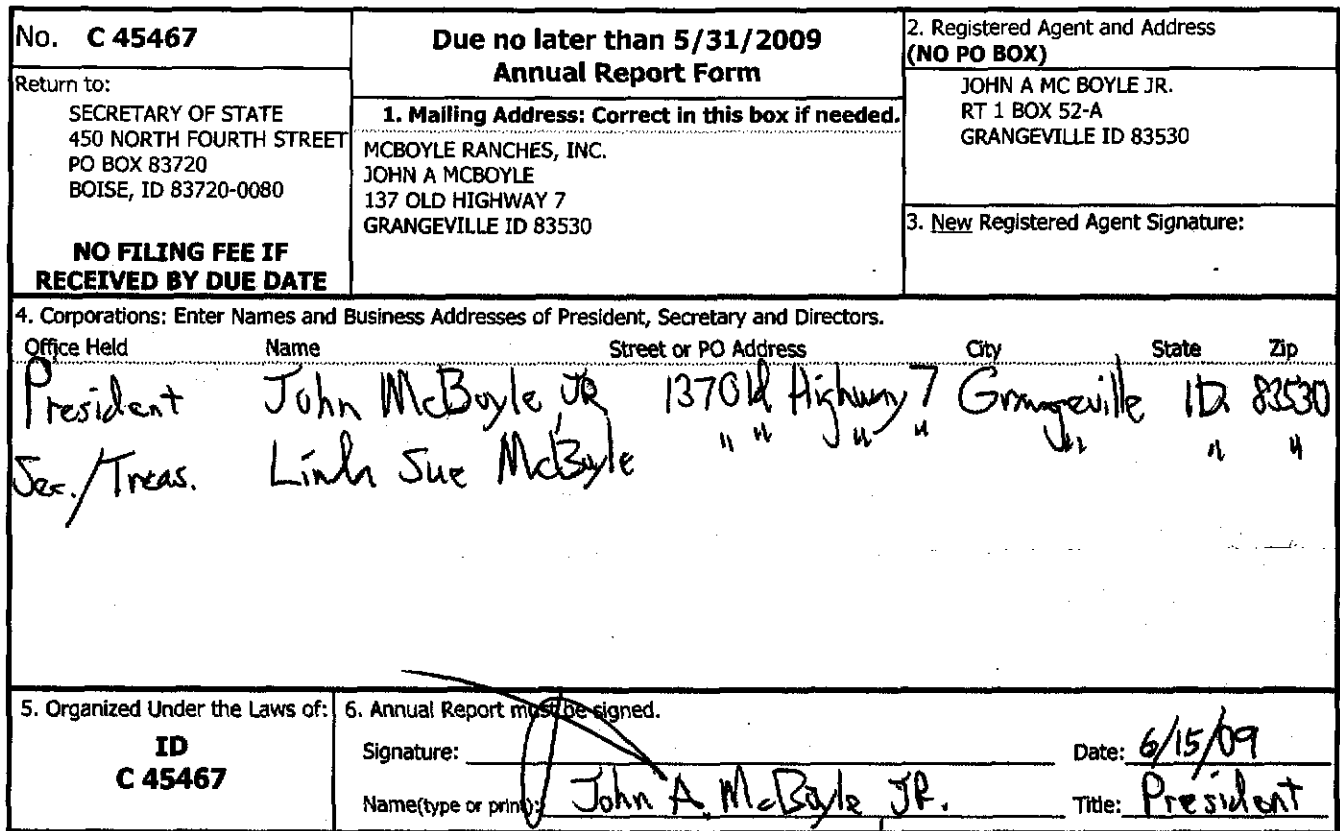 No. C 45467
Return to:
SECRETARY OF STATE
450 NORTH FOURTH STREET
PO BOX 83720
BOISE, ID 83720-0080
NO FILING FEE IF
RECEIVED BY DUE DATE
Due no later than 5/31/2009
Annual Report Form
1. Mailing Address: Correct in this box if needed.
MCBOYLE RANCHES, INC.
JOHN A MCBOYLE
137 OLD HIGHWAY 7
GRANGEVILLE ID 83530
2. Registered Agent and Address
(NO PO BOX)
JOHN A MC BOYLE JR.
RT 1 BOX 52-A
GRANGEVILLE ID 83530
3. New Registered Agent Signature:
4. Corporations: Enter Names and Business Addresses of President, Secretary and Directors.
Office Held Name Street or PO Address City State Zip
President John McBoyle JR 137 Old Highway 7 Grangeville ID. 83530
Sec./Treas. Linda Sue McBoyle " " " " " " "
5. Organized Under the Laws of:
ID
C 45467
6. Annual Report must be signed.
Signature: Date: 6/15/09
Name(type or print): John A. McBoyle JR. Title: President